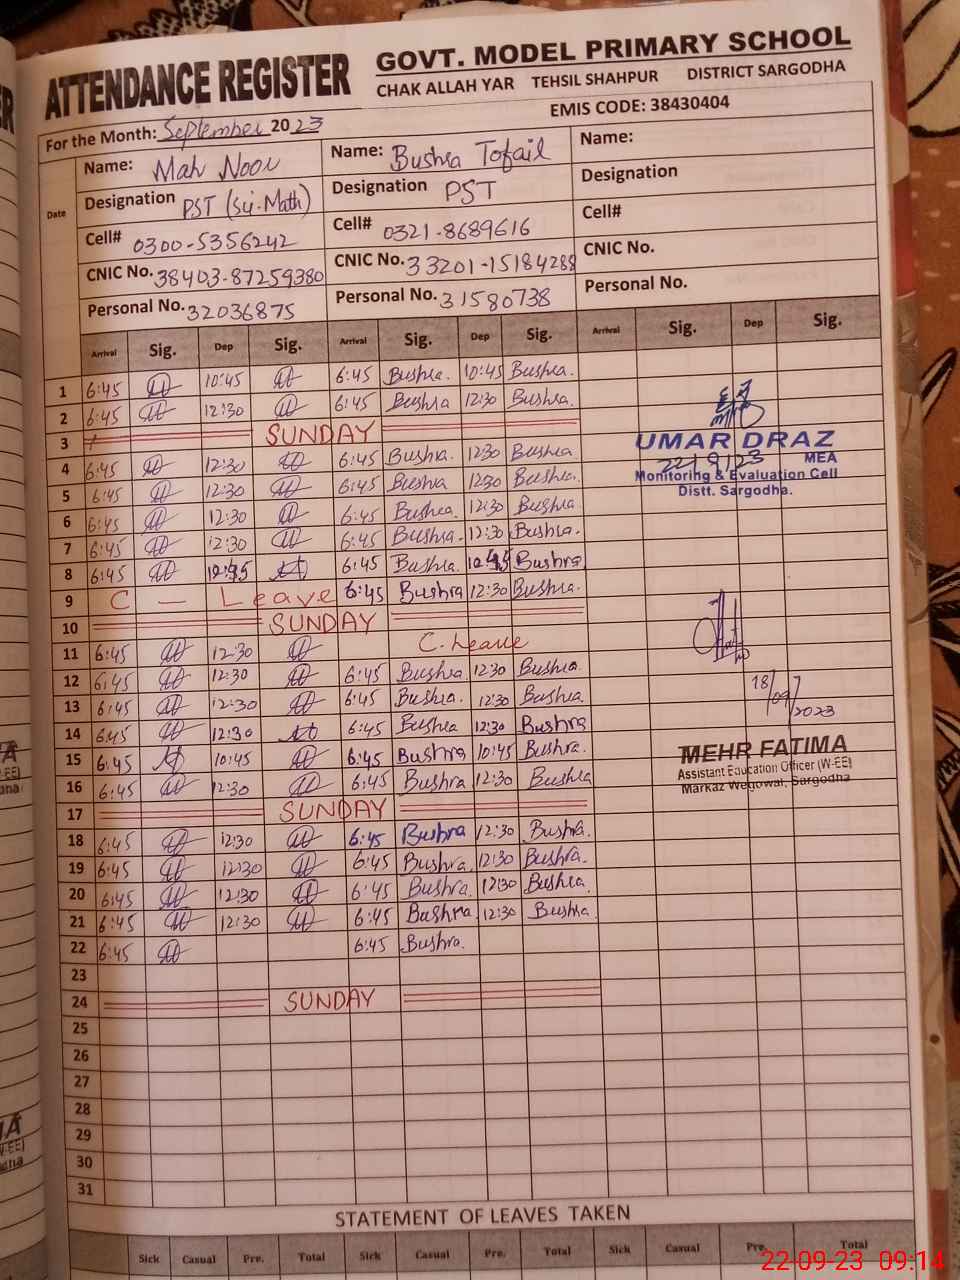 ATTENDANCE REGISTER
GOVT. MODEL PRIMARY SCHOOL
CHAK ALLAH YAR TEHSIL SHAHPUR DISTRICT SARGODHA
EMIS CODE: 38430404
For the Month: September 2023
Date
Name: Mah Noor Name: Bushra Tofail Name:
Designation PST (Sci-Math) Designation PST Designation
Cell# 0300-5356242 Cell# 0321-8689616 Cell#
CNIC No. 38403-87259380 CNIC No. 33201-15184288 CNIC No.
Personal No. 32036875 Personal No. 31580738 Personal No.
Arrival Sig. Dep Sig. Arrival Sig. Dep Sig. Arrival Sig. Dep Sig.
1 6:45 10:45 6:45 Bushra. 10:45 Bushra.
2 6:45 12:30 6:45 Bushra 12:30 Bushra.
3 SUNDAY
4 6:45 12:30 6:45 Bushra. 12:30 Bushra
5 6:45 12:30 6:45 Bushra 12:30 Bushra.
6 6:45 12:30 6:45 Bushra. 12:30 Bushra.
7 6:45 12:30 6:45 Bushra. 12:30 Bushra.
8 6:45 6:45 Bushra. Bushra
9 C - Leave 6:45 Bushra 12:30 Bushra.
10 SUNDAY
11 6:45 12:30 C. Leave
12 6:45 12:30 6:45 Bushra 12:30 Bushra
13 6:45 12:30 6:45 Bushra. 12:30 Bushra.
14 6:45 12:30 6:45 Bushra 12:30 Bushra
15 6:45 10:45 6:45 Bushra 10:45 Bushra.
16 6:45 12:30 6:45 Bushra 12:30 Bushra
17 SUNDAY
18 6:45 12:30 6:45 Bushra 12:30 Bushra.
19 6:45 12:30 6:45 Bushra. 12:30 Bushra.
20 6:45 12:30 6:45 Bushra. 12:30 Bushra.
21 6:45 12:30 6:45 Bushra 12:30 Bushra.
22 6:45 6:45 Bushra.
23
24 SUNDAY
25
26
27
28
29
30
31
UMAR DRAZ
22/9/23 MEA
Monitoring & Evaluation Cell
Distt. Sargodha.
18/09/2023
MEHR FATIMA
Assistant Education Officer (W-EE)
Markaz Wegowal, Sargodha
STATEMENT OF LEAVES TAKEN
Sick Casual Pre. Total Sick Casual Pre. Total Sick Casual Pre. Total
22-09-23 09:14